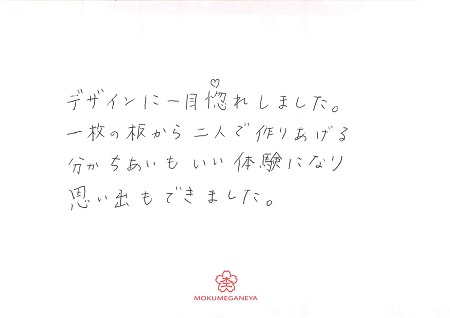 デザインに一目惚れしました。
一枚の板から二人で作りあげる
分かちあいもいい体験になり
思い出もできました。
杢
MOKUMEGANEYA